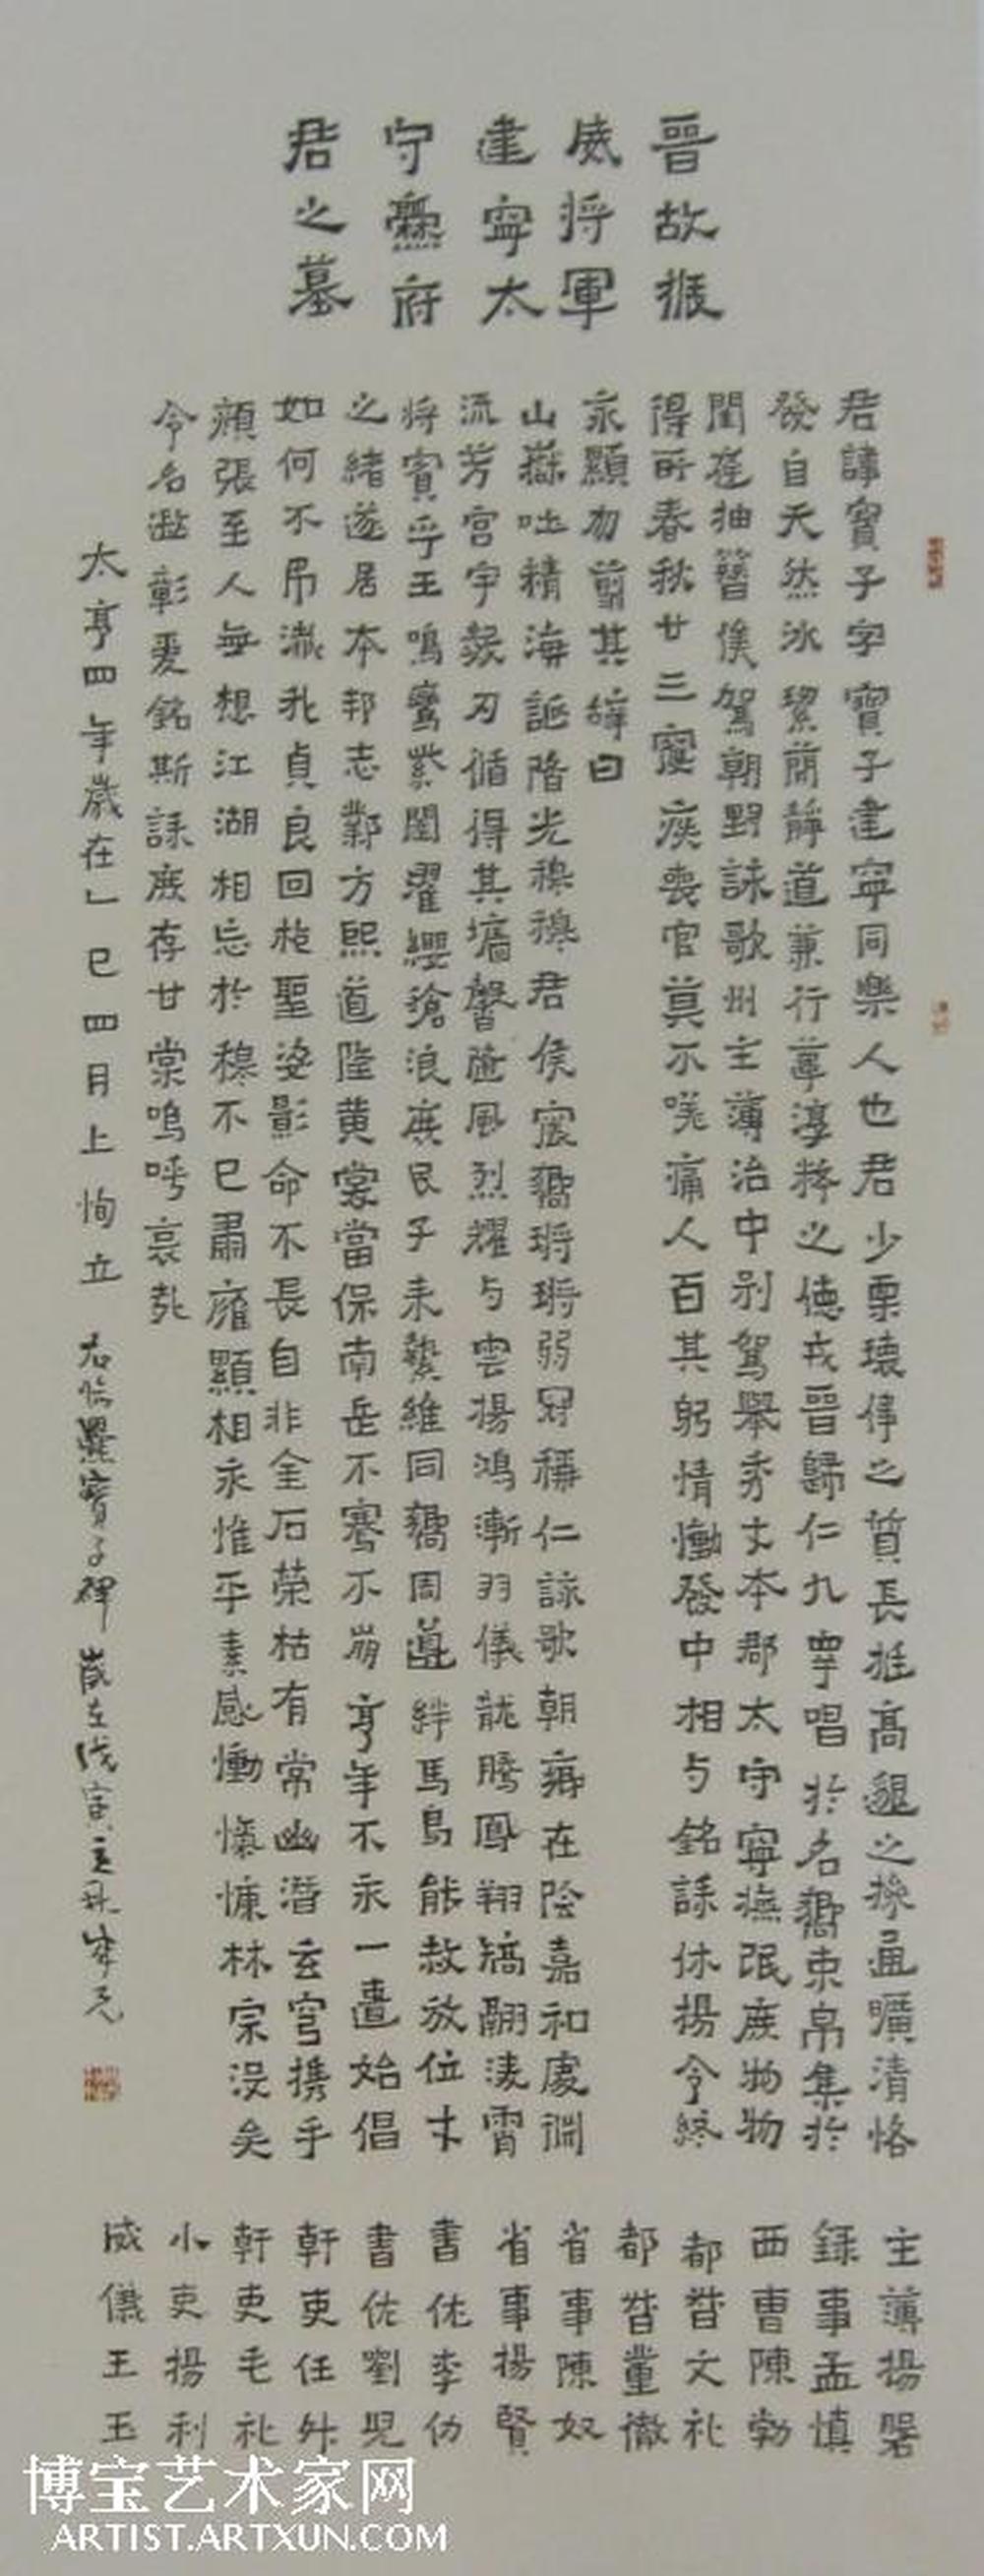 晉故振
威將軍
建寧太
守爨府
君之墓
君諱寶子字寶子建寧同樂人也君少稟瓌偉之質長挺高邈之操通曠清恪
發自天然冰絜簡靜道兼行葦淳粹之德戎晉歸仁九皋唱於名嚮束帛集於
閨庭抽簪俟駕朝野詠歌州主薄治中別駕舉秀才本郡太守寧撫氓庶物物
得所春秋廿三寢疾喪官莫不嗟痛人百其躬情慟發中相与銘誄休揚令終
永顯勿翦其辭曰
山嶽吐精海誕陗光穆穆君侯震嚮鏘鏘弱冠稱仁詠歌朝鄉在陰嘉和處淵
流芳宮宇數刃循得其墻馨隨風烈耀与雲揚鴻漸羽儀龍騰鳳翔矯翮凌霄
將賓乎王鳴鸞紫闥濯纓滄浪庶民子来縶維同嚮周遵絆馬曷能赦放位才
之緒遂居本邦志鄴方熙道隆黃裳當保南岳不騫不崩享年不永一匱始倡
如何不弔瀸我貞良回枕聖姿影命不長自非金石榮枯有常幽潛玄穹攜手
顏張至人無想江湖相忘於穆不已肅雍顯相永惟平素感慟愾慷林宗沒矣
令名遐彰爰銘斯誄庶存甘棠嗚呼哀哉
太亨四年歲在乙巳四月上恂立 右臨爨寶子碑 歲在戊寅
主薄揚磐
錄事孟慎
西曹陳勃
都督文礼
都督董徹
省事陳奴
省事揚賢
書佐李仂
書佐劉兒
幹吏任升
幹吏毛礼
小吏揚利
威儀王玉
博宝艺术家网
ARTIST.ARTXUN.COM